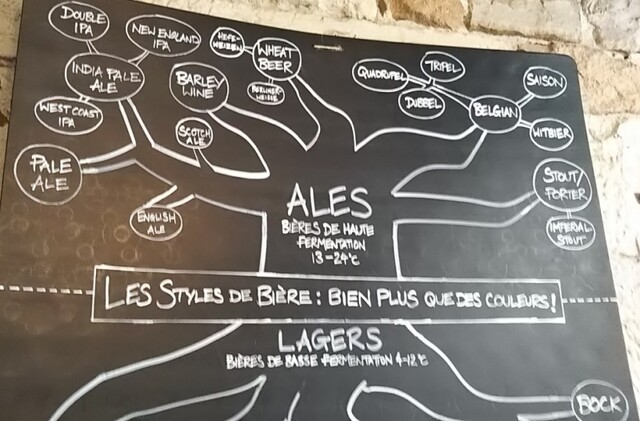 DOUBLE
IPA
NEW ENGLAND
IPA
INDIA PALE
ALE
WEST COAST
IPA
PALE
ALE
ENGLISH
ALE
BARLEY
WINE
SCOTCH
ALE
HEFE-
WEIZEN
WHEAT
BEER
BERLINER-
WEISSE
QUADRUPEL
TRIPEL
DUBBEL
BELGIAN
SAISON
WITBIER
STOUT/
PORTER
IMPERIAL
STOUT
ALES
BIÈRES DE HAUTE
FERMENTATION
13-24°C
LES STYLES DE BIÈRE : BIEN PLUS QUE DES COULEURS !
LAGERS
BIÈRES DE BASSE FERMENTATION 4-12°C
BOCK